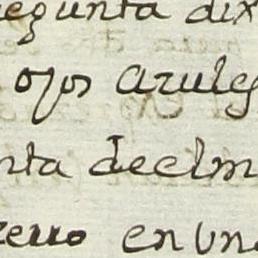 pegunta dix
ojos azules
nta deelm
zerro en un